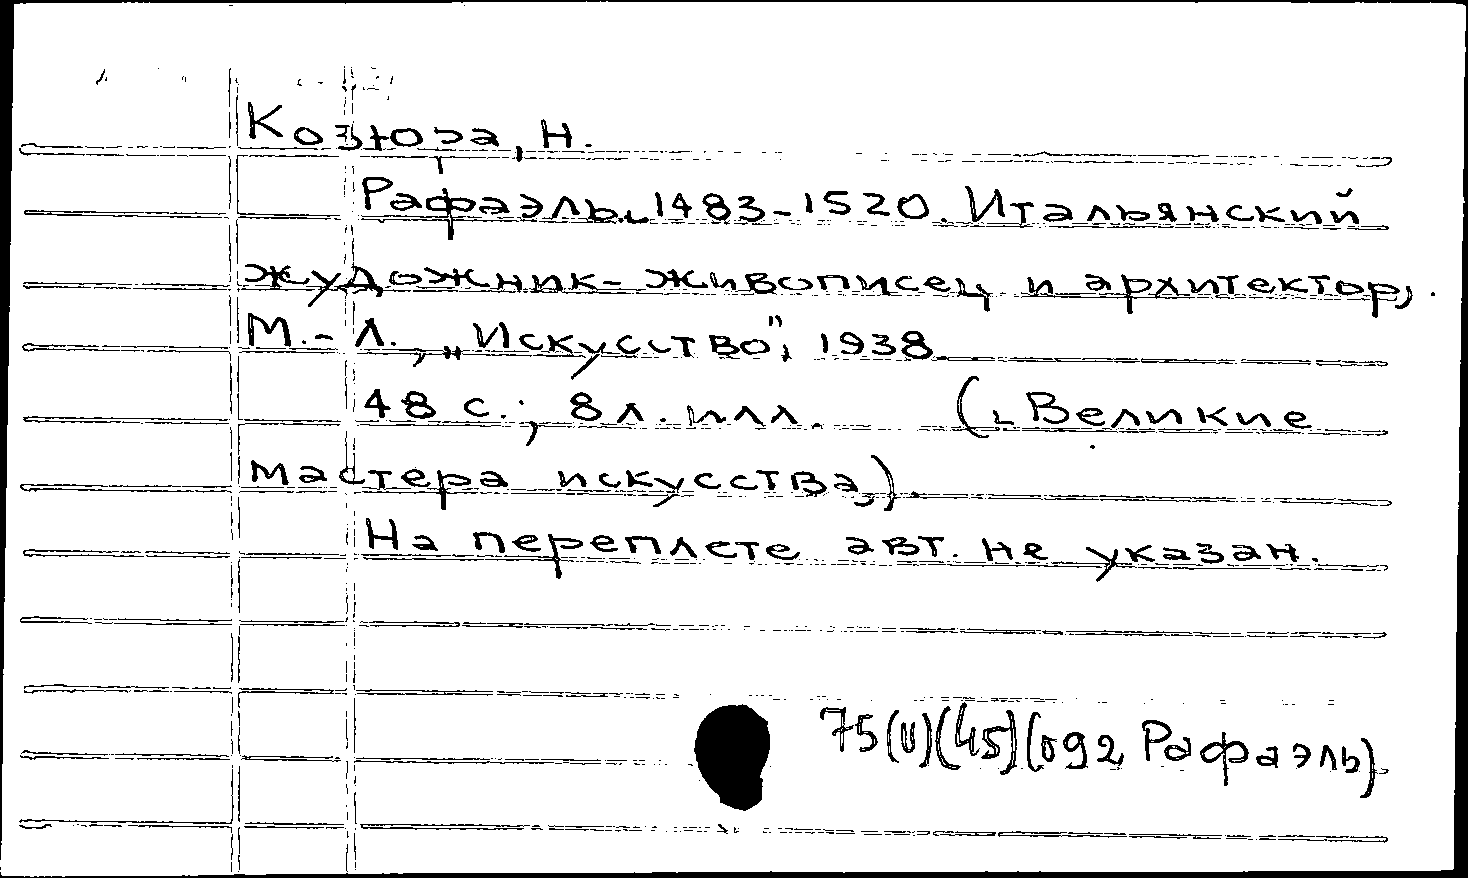 Козюра, Н.
Рафаэль. 1483-1520. Итальянский
художник-живописец и архитектор.
М.-Л., „Искусство", 1938
48 с.; 8 л. илл. (Великие
мастера искусства).
На переплете авт. не указан.
75(И)(45)(092 Рафаэль)